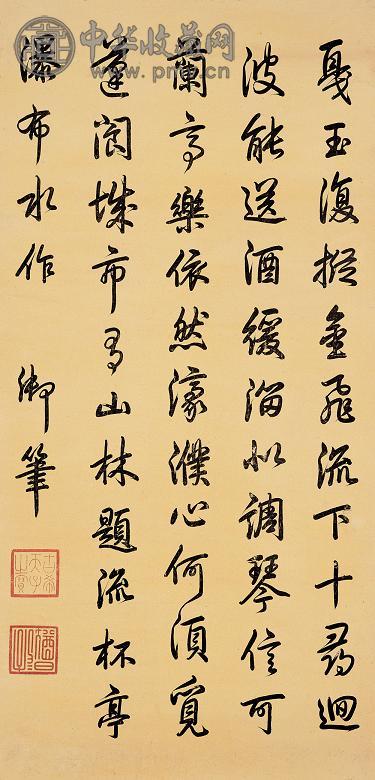 中华收藏网
戛玉復摐金飛流下十尋迴
波能送酒緩溜似調琴信可
蘭亭樂依然濠濮心何須覓
蓬閬城市有山林題流杯亭
瀑布水作 御筆
古希天子之寶
猶日孜孜